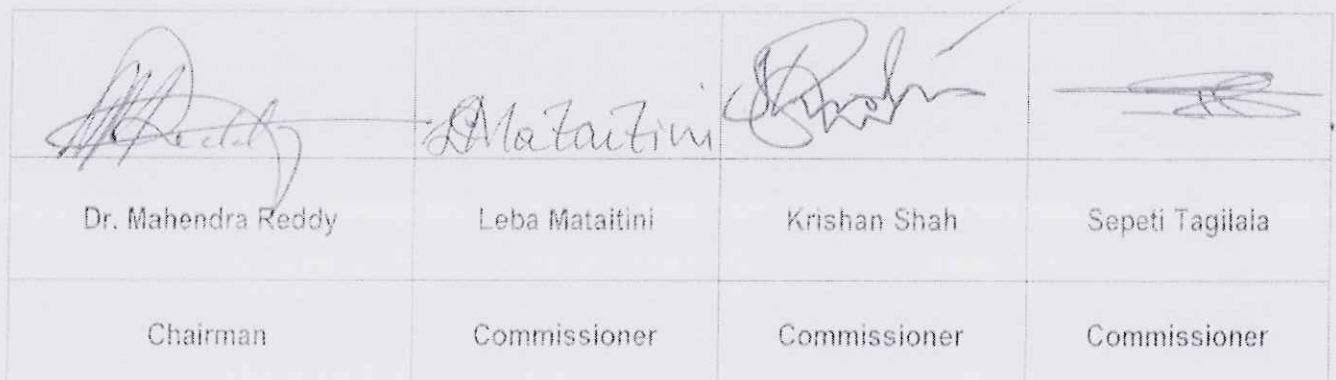 MReddy LMataitini KShah
Dr. Mahendra Reddy Leba Mataitini Krishan Shah Sepeti Tagilala
Chairman Commissioner Commissioner Commissioner